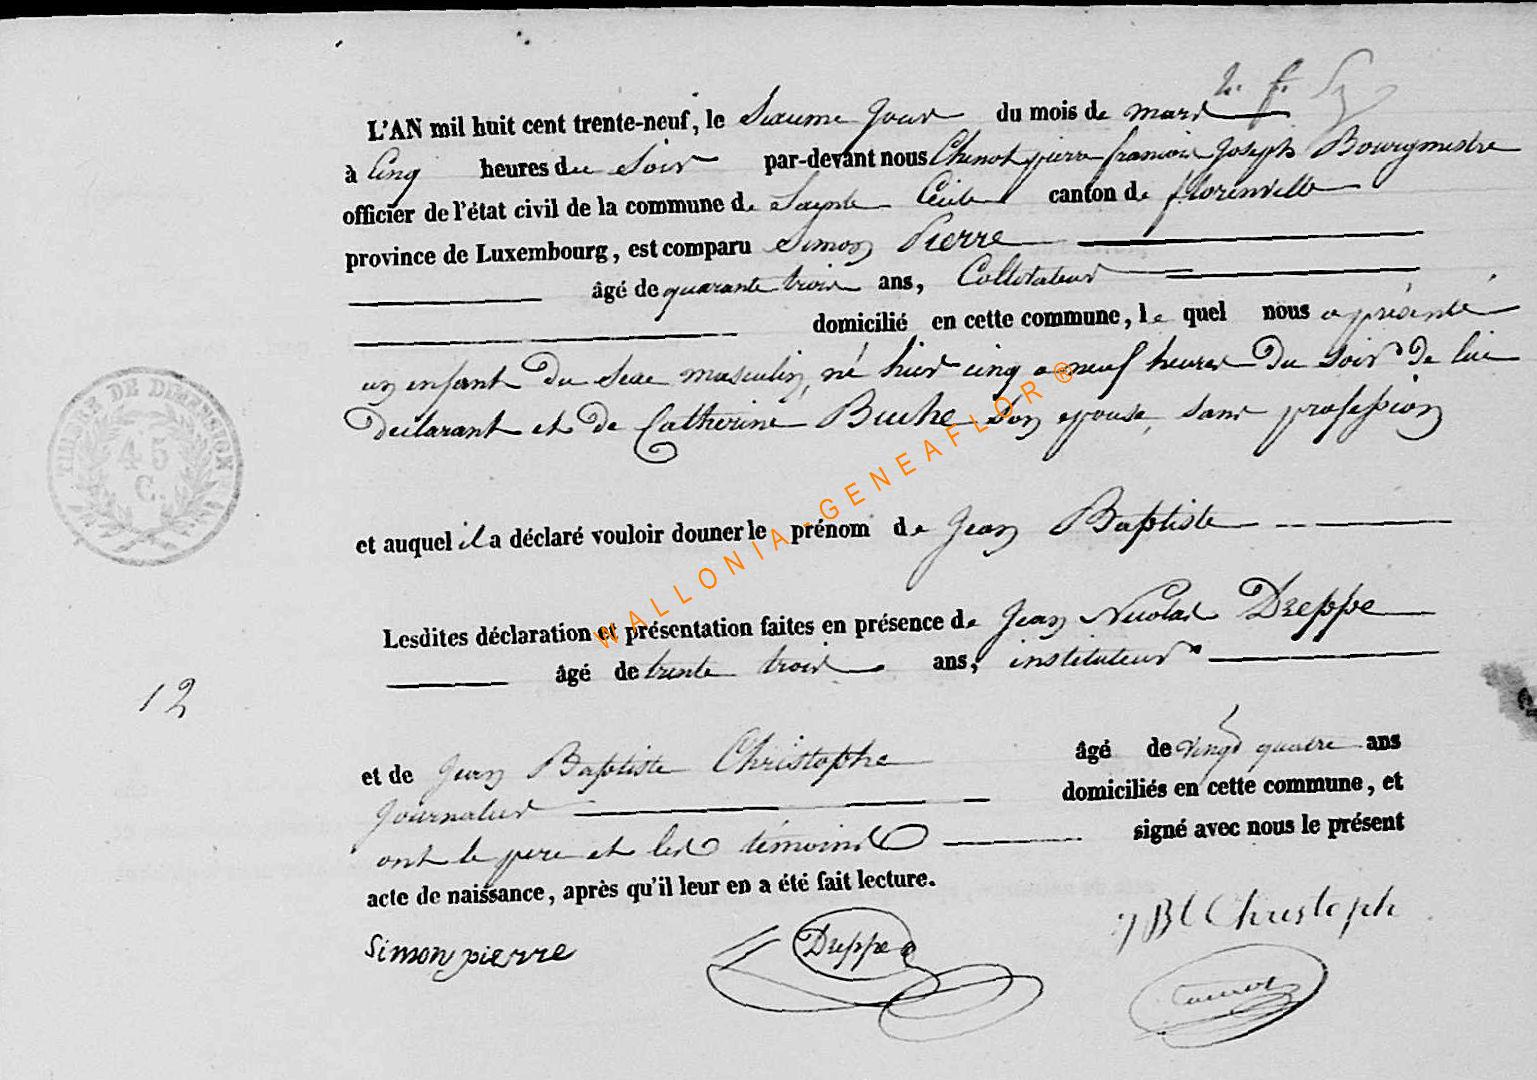 L'AN mil huit cent trente-neuf, le Sixieme Jour du mois de mars
à Cinq heures du Soir par-devant nous Chenot pierre francois Joseph Bourgmestre
officier de l'état civil de la commune de Sainte Cécile canton de florenville
province de Luxembourg, est comparu Simon Pierre
âgé de quarante trois ans, Cultivateur
domicilié en cette commune, le quel nous a présenté
un enfant du Sexe masculin, né hier cinq a neuf heures du soir de lui
declarant et de Catherine Buche son epouse, sans profession
et auquel il a déclaré vouloir donner le prénom de Jean Baptiste
Lesdites déclaration et présentation faites en présence de Jean Nicolas Dreppe
âgé de trente trois ans, instituteur
12
et de Jean Baptiste Christophe âgé de vingt quatre ans
Journalier domiciliés en cette commune, et
ont le pere et les témoins signé avec nous le présent
acte de naissance, après qu'il leur en a été fait lecture.
Simon pierre Dreppe JBt Christoph
TIMBRE DE DIMENSION
45
C.
WALLONIA-GENEAFLOR®